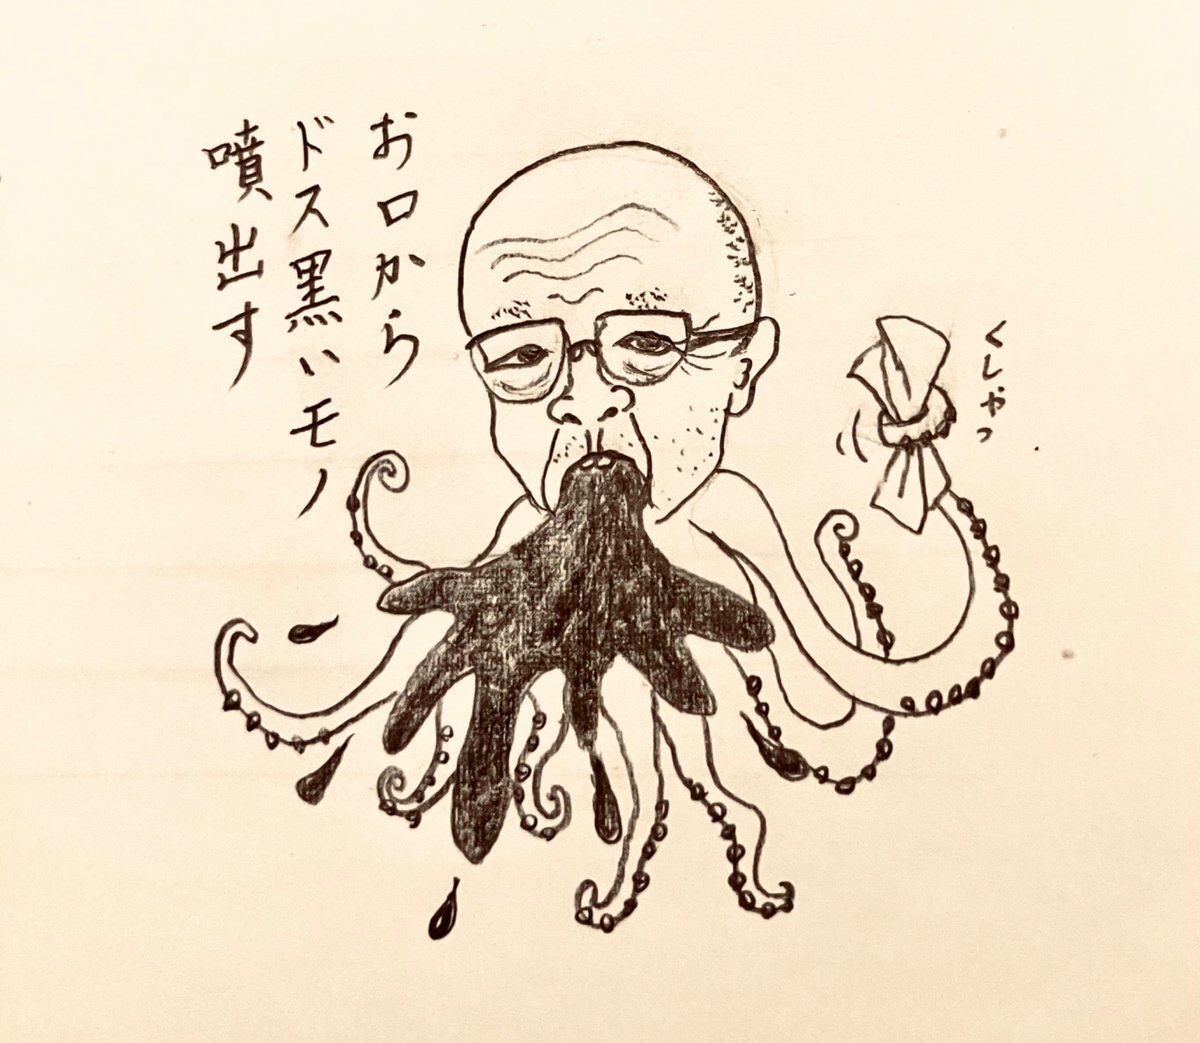 お口から
ドス黒いモノ
噴出す
くしゃっ